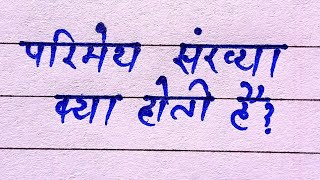 परिमेय संख्या
क्या होती है?